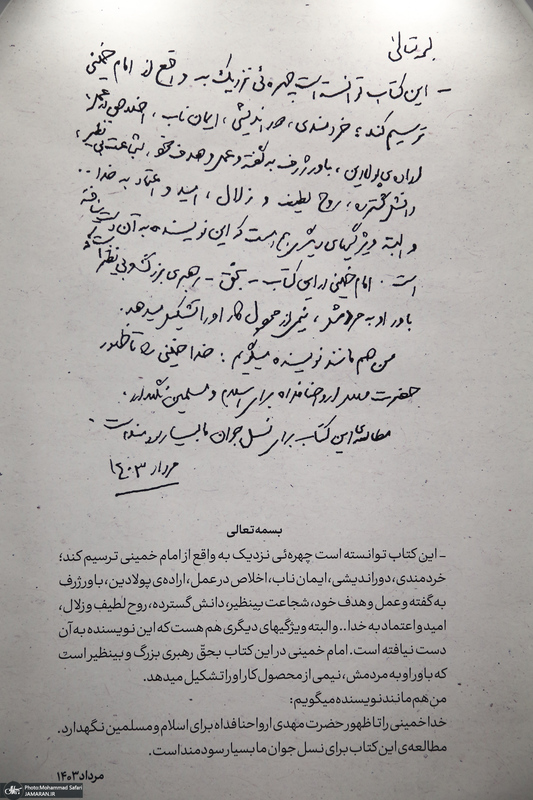 بسمه تعالی
- این کتاب توانسته است چهره‌ئی نزدیک به واقع از امام خمینی
ترسیم کند؛ خردمندی، دوراندیشی، ایمان ناب، اخلاص در عمل،
اراده‌ی پولادین، باور ژرف به گفته و عمل و هدف خود، شجاعت بی‌نظیر،
دانش گسترده، روح لطیف و زلال، امید و اعتماد به خدا..
و البته ویژگیهای دیگری هم هست که این نویسنده به آن دست نیافته
است. امام خمینی در این کتاب - بحق - رهبری بزرگ و بی‌نظیر است که
باور او به مردمش، نیمی از محصول کار او را تشکیل میدهد.
من هم مانند نویسنده میگویم: خدا خمینی را تا ظهور
حضرت مهدی ارواحنا فداه برای اسلام و مسلمین نگهدارد.
مطالعه‌ی این کتاب برای نسل جوان ما بسیار سودمند است.
مرداد ۱۴۰۳
بسمه تعالی
- این کتاب توانسته است چهره‌ئی نزدیک به واقع از امام خمینی ترسیم کند؛
خردمندی، دوراندیشی، ایمان ناب، اخلاص در عمل، اراده‌ی پولادین، باور ژرف
به گفته و عمل و هدف خود، شجاعت بینظیر، دانش گسترده، روح لطیف و زلال،
امید و اعتماد به خدا.. و البته ویژگیهای دیگری هم هست که این نویسنده به آن
دست نیافته است. امام خمینی در این کتاب بحقّ رهبری بزرگ و بینظیر است
که باور او به مردمش، نیمی از محصول کار او را تشکیل میدهد.
من هم مانند نویسنده میگویم:
خدا خمینی را تا ظهور حضرت مهدی ارواحنا فداه برای اسلام و مسلمین نگهدارد.
مطالعه‌ی این کتاب برای نسل جوان ما بسیار سودمند است.
مرداد ۱۴۰۳
Photo:Mohammad Safari
JAMARAN.IR